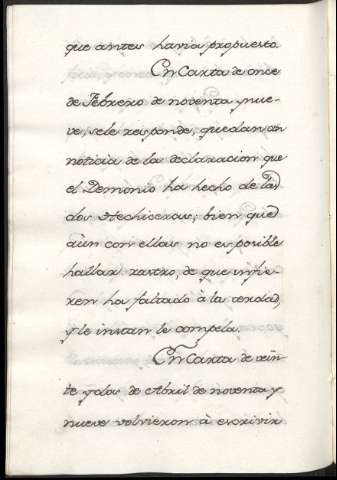 que antes havia propuesto
En Carta de once
de Febrero de noventa y nue-
ve, se le responde, quedan con
noticia de la declaracion que
el Demonio ha hecho de las
dos Hechiceras; bien que
aùn con ellas no es posible
hallar rastro, de que infie-
ren ha faltado à la verdad,
y le instan le compela.
En Carta de vein-
te y dos de Abril de noventa y
nueve volvieron à escrivir